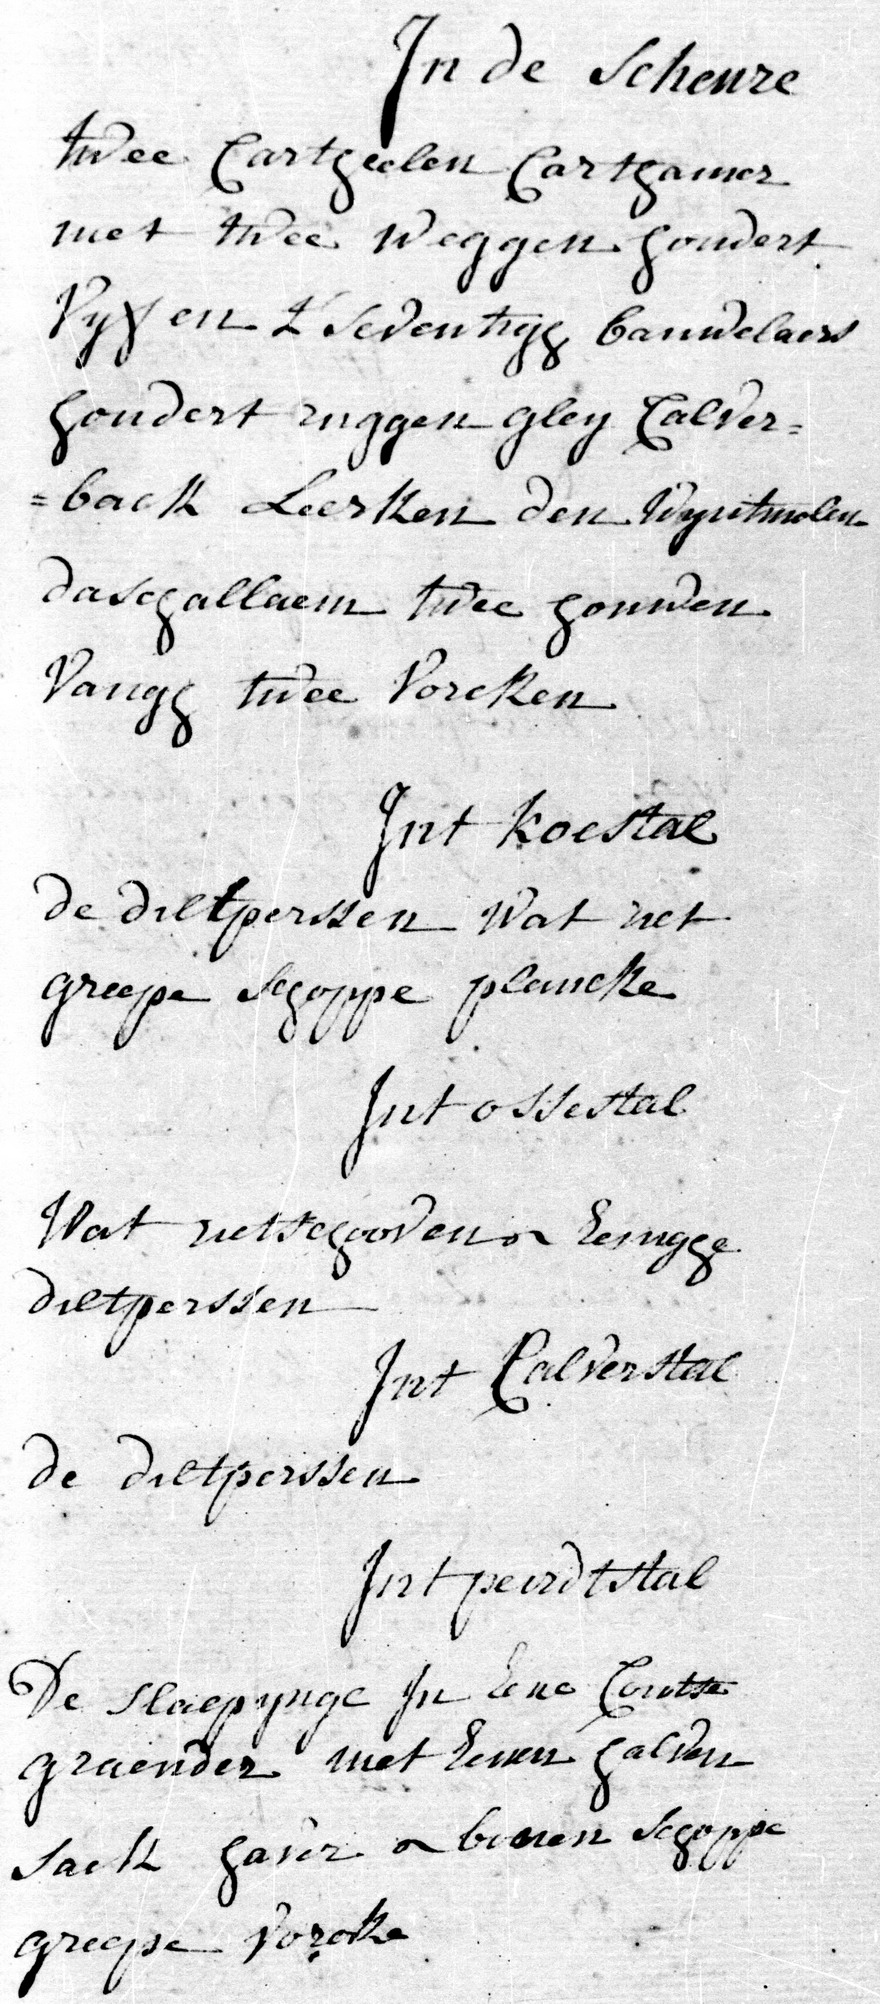 In de Scheure
twee Cartheelen Carthamer
met twee weggen hondert
Vyf en t'seventigh bauwelaers
hondert ruggen gley Calver=
=back Leerken den Wyntmolen
daschallaem twee houwen
Vangh twee Vorcken
Int koestal
de diltperssen wat riet
greepe schoppe plancke
Int ossestal
Wat rietschooven & Eenighe
diltperssen
Int Calverstal
de diltperssen
Int peirdtstal
De slaepynge In Eene Coutse
graender met Eenen halven
sack haver & boenen schoppe
greepe Vorcke